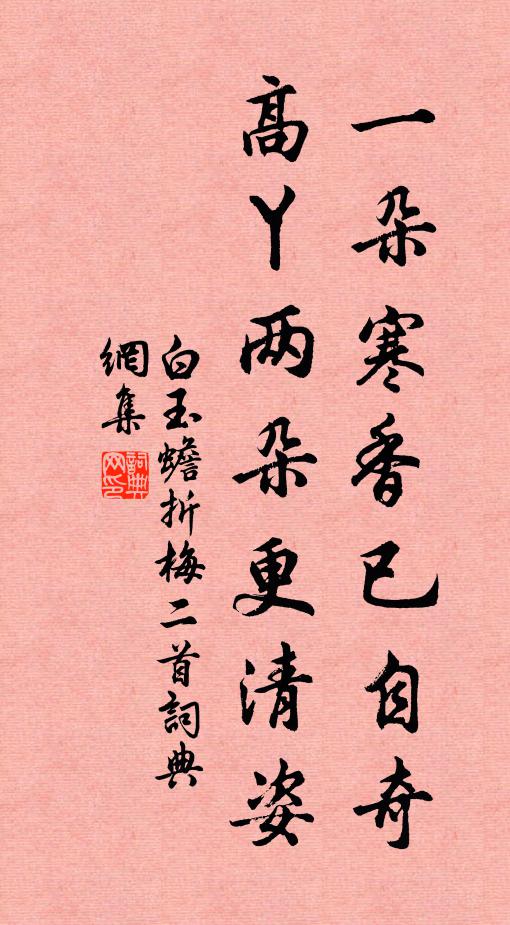 一朵寒香已自奇
高丫两朵更清姿
白玉蟾折梅二首詞典
網集
詞典网印